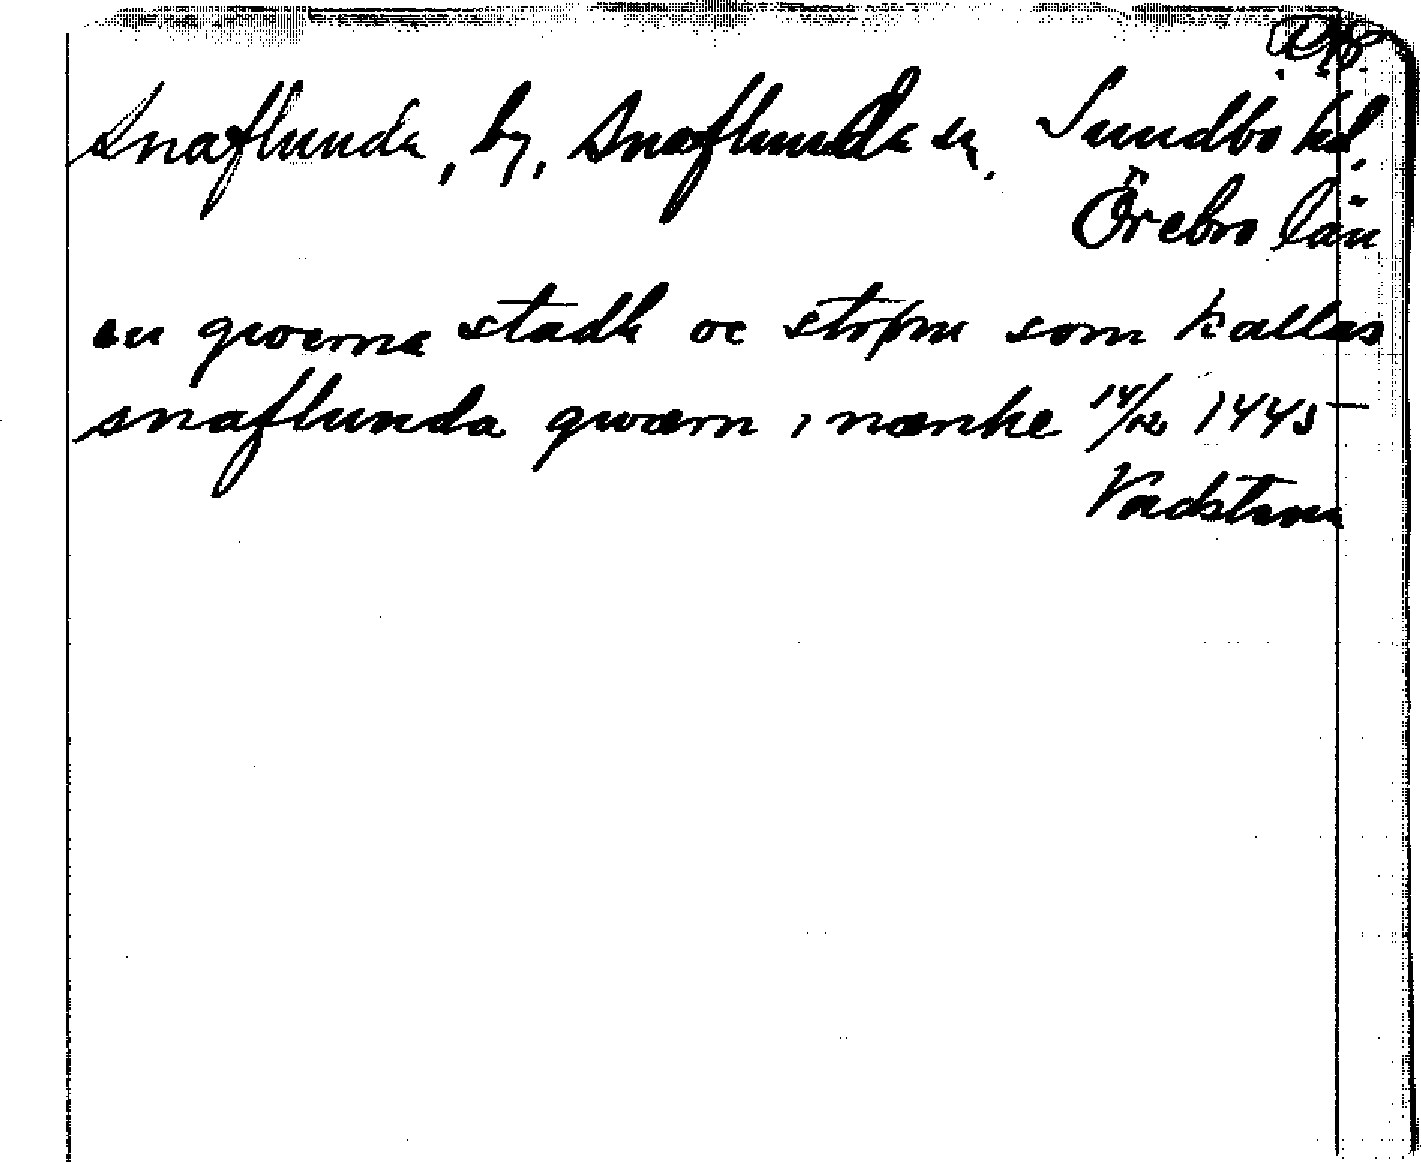 Snaflunda, by, Snaflunda sn. Sundbo hd.
Örebro län
en qwerna stadh oc strøm som kallas
snaflunda qwærn i nærike 14/12 1445
Vadstena